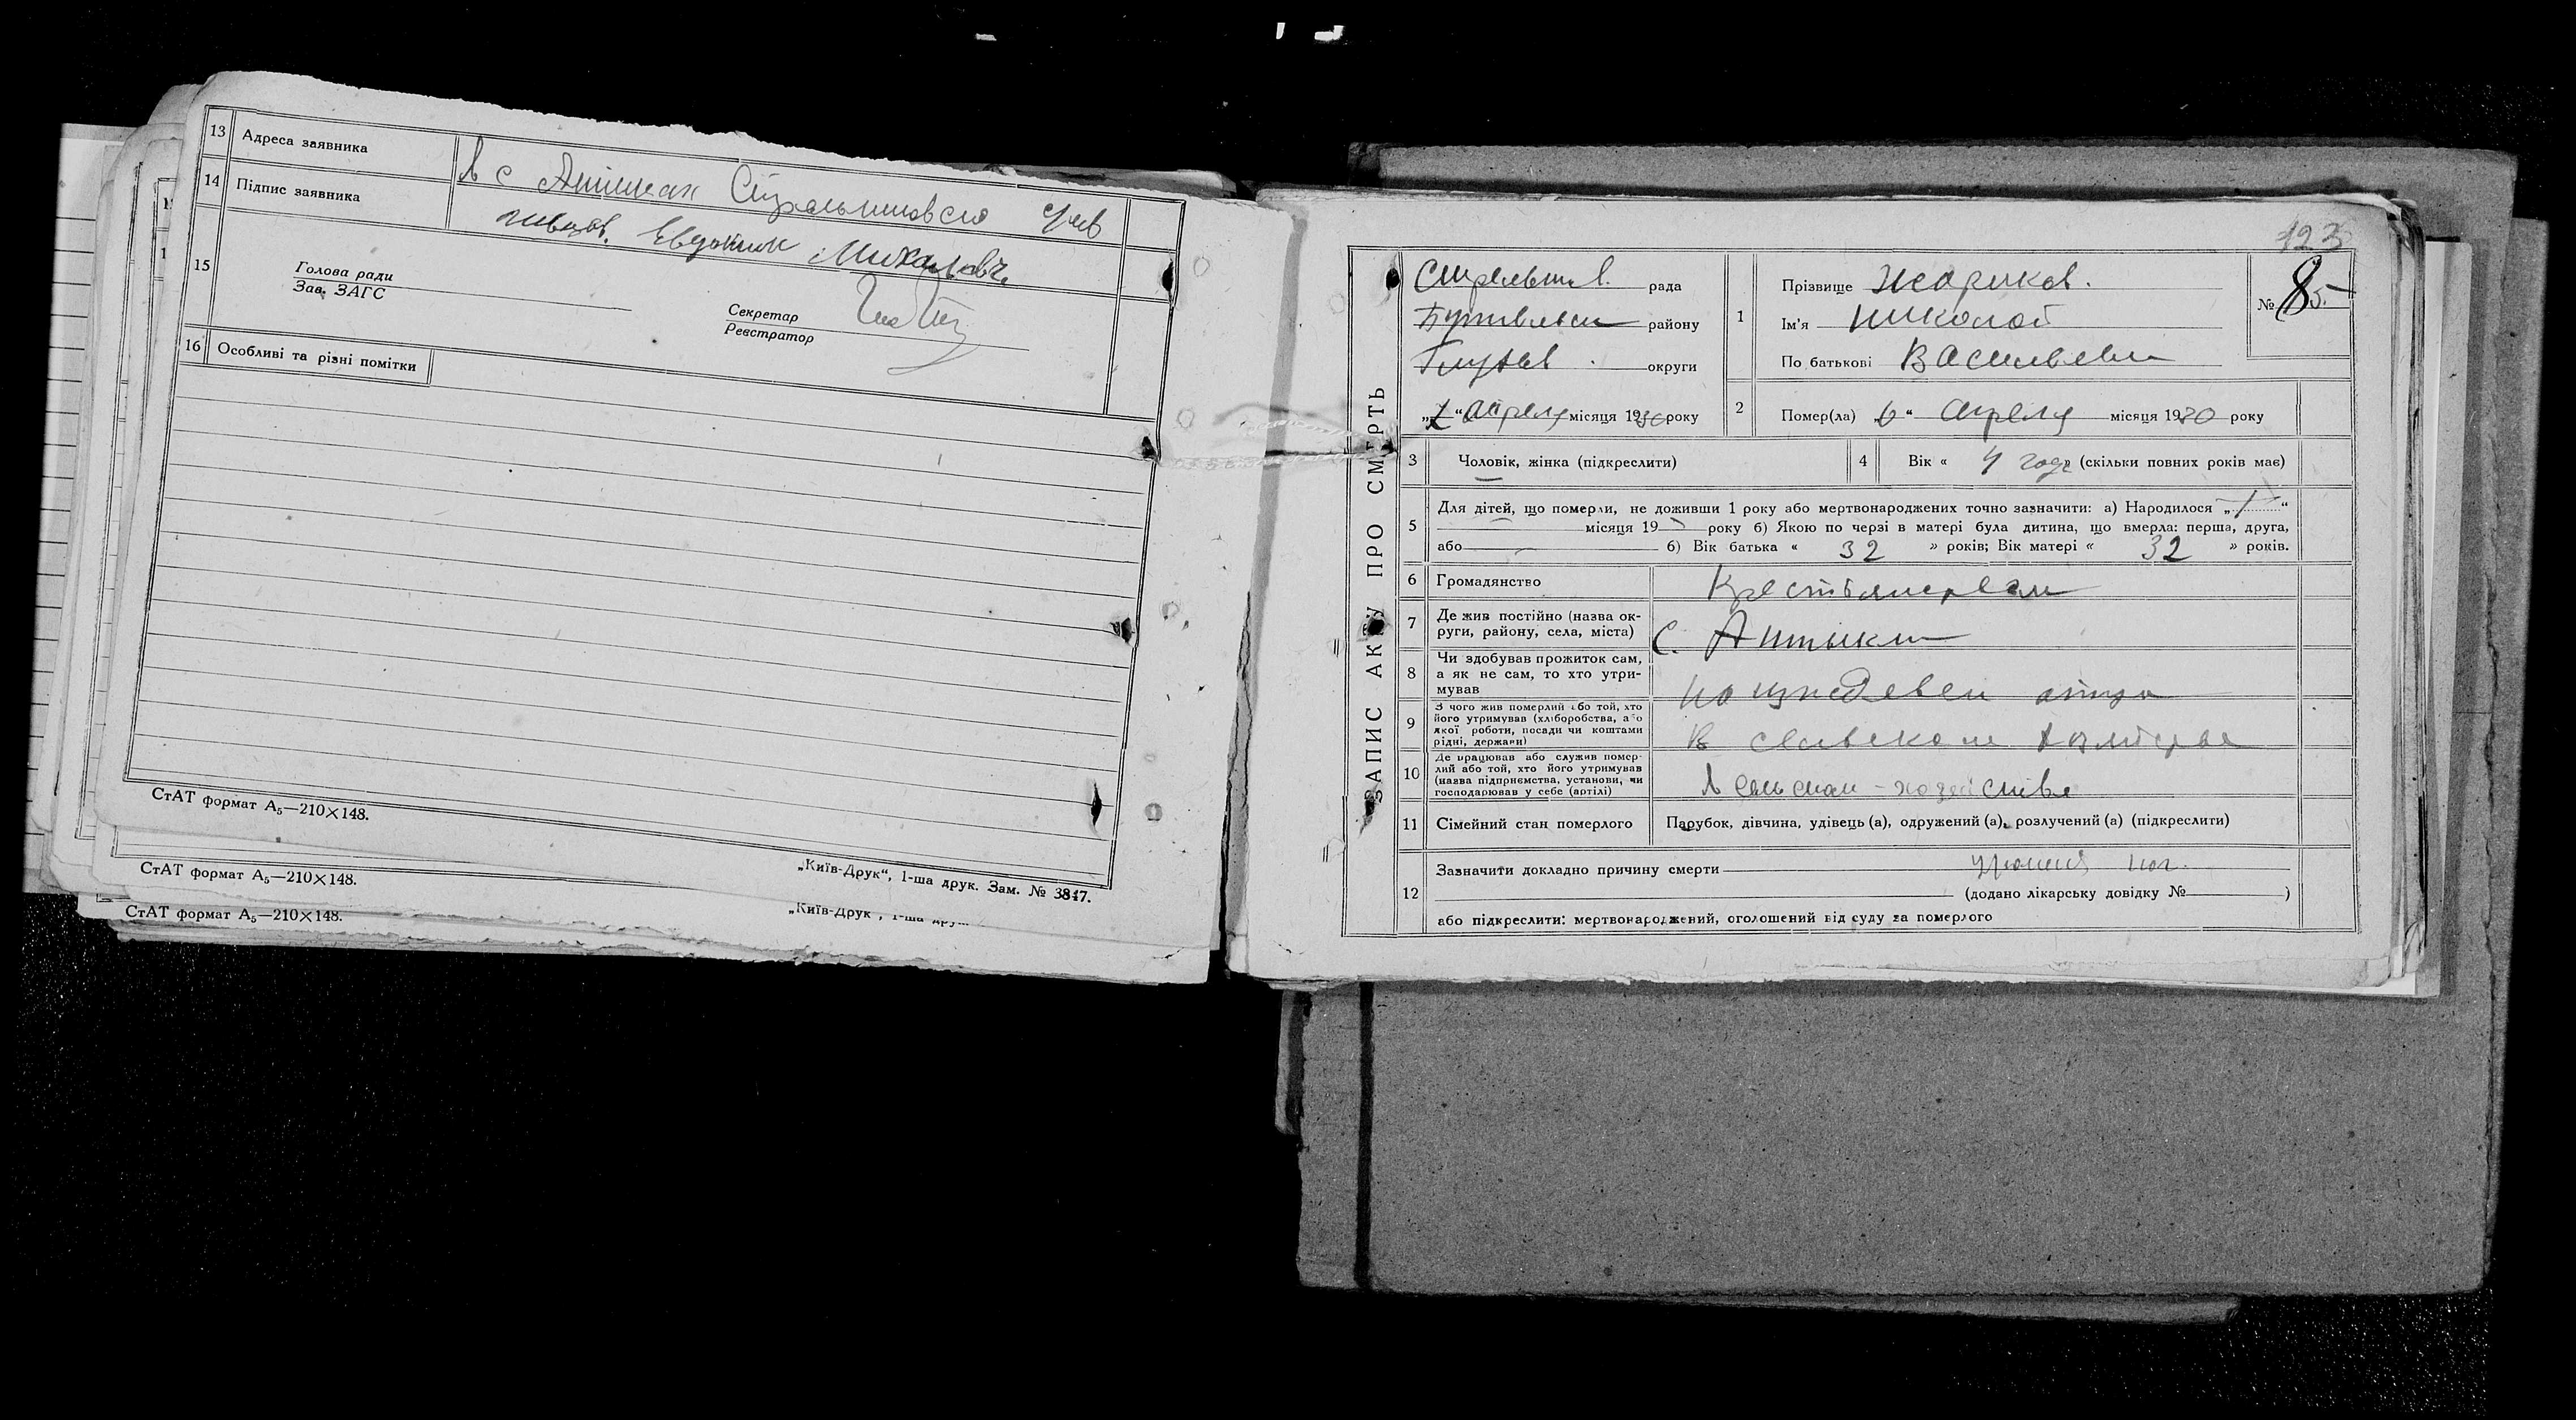 13 Адреса заявника
в с
14 Підпис заявника
Михайловч.
15
Голова ради
Зав. ЗАГС
Секретар
Реєстратор
16 Особливі та різні помітки
СтАТ формат А5—210×148.
„Київ-Друк“, 1-ша друк. Зам. № 3847.
СтАТ формат А5—210×148.
СтАТ формат А5—210×148.
„Київ-Друк
123
ЗАПИС АКТУ ПРО СМЕРТЬ
рада
району
округи
апреля місяця 1930 року
1 Прізвище Жариков.
Ім'я Николай
По батькові Васильевич
№ 85
2 Помер(ла) 6“ апреля місяця 1930 року
3 Чоловік, жінка (підкреслити)
4 Вік « 4 года » (скільки повних років має)
5 Для дітей, що померли, не доживши 1 року або мертвонароджених точно зазначити: а) Народилося „ “
місяця 19 року б) Якою по черзі в матері була дитина, що вмерла: перша, друга,
або б) Вік батька « 32 » років; Вік матері « 32 » років.
6 Громадянство
7 Де жив постійно (назва ок-
руги, району, села, міста)
с.
8 Чи здобував прожиток сам,
а як не сам, то хто утри-
мував
на иждевен отца
9 З чого жив померлий або той, хто
його утримував (хліборобства, або
якої роботи, посади чи коштами
рідні, держави)
10 Де працював або служив помер-
лий або той, хто його утримував
(назва підприємства, установи, чи
господарював у себе (артілі)
в сельском-хозяйстве
11 Сімейний стан померлого
Парубок, дівчина, удівець (а), одружений (а), розлучений (а) (підкреслити)
12 Зазначити докладно причину смерти
(додано лікарську довідку № )
або підкреслити: мертвонароджений, оголошений від суду за померлого